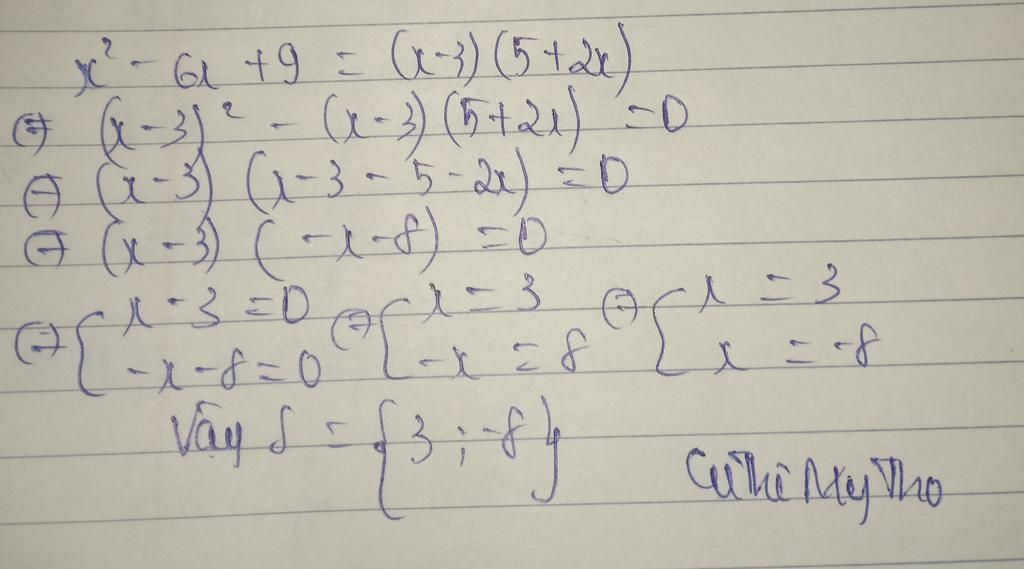 x² - 6x + 9 = (x-3)(5+2x)
⇔ (x-3)² - (x-3)(5+2x) = 0
⇔ (x-3) (x-3-5-2x) = 0
⇔ (x-3) (-x-8) = 0
⇔ { x-3=0 ⇔ { x = 3 ⇔ { x = 3
-x-8=0 -x = 8 x = -8
Vậy S = {3 ; -8}
Cù Thi Mỹ Tho